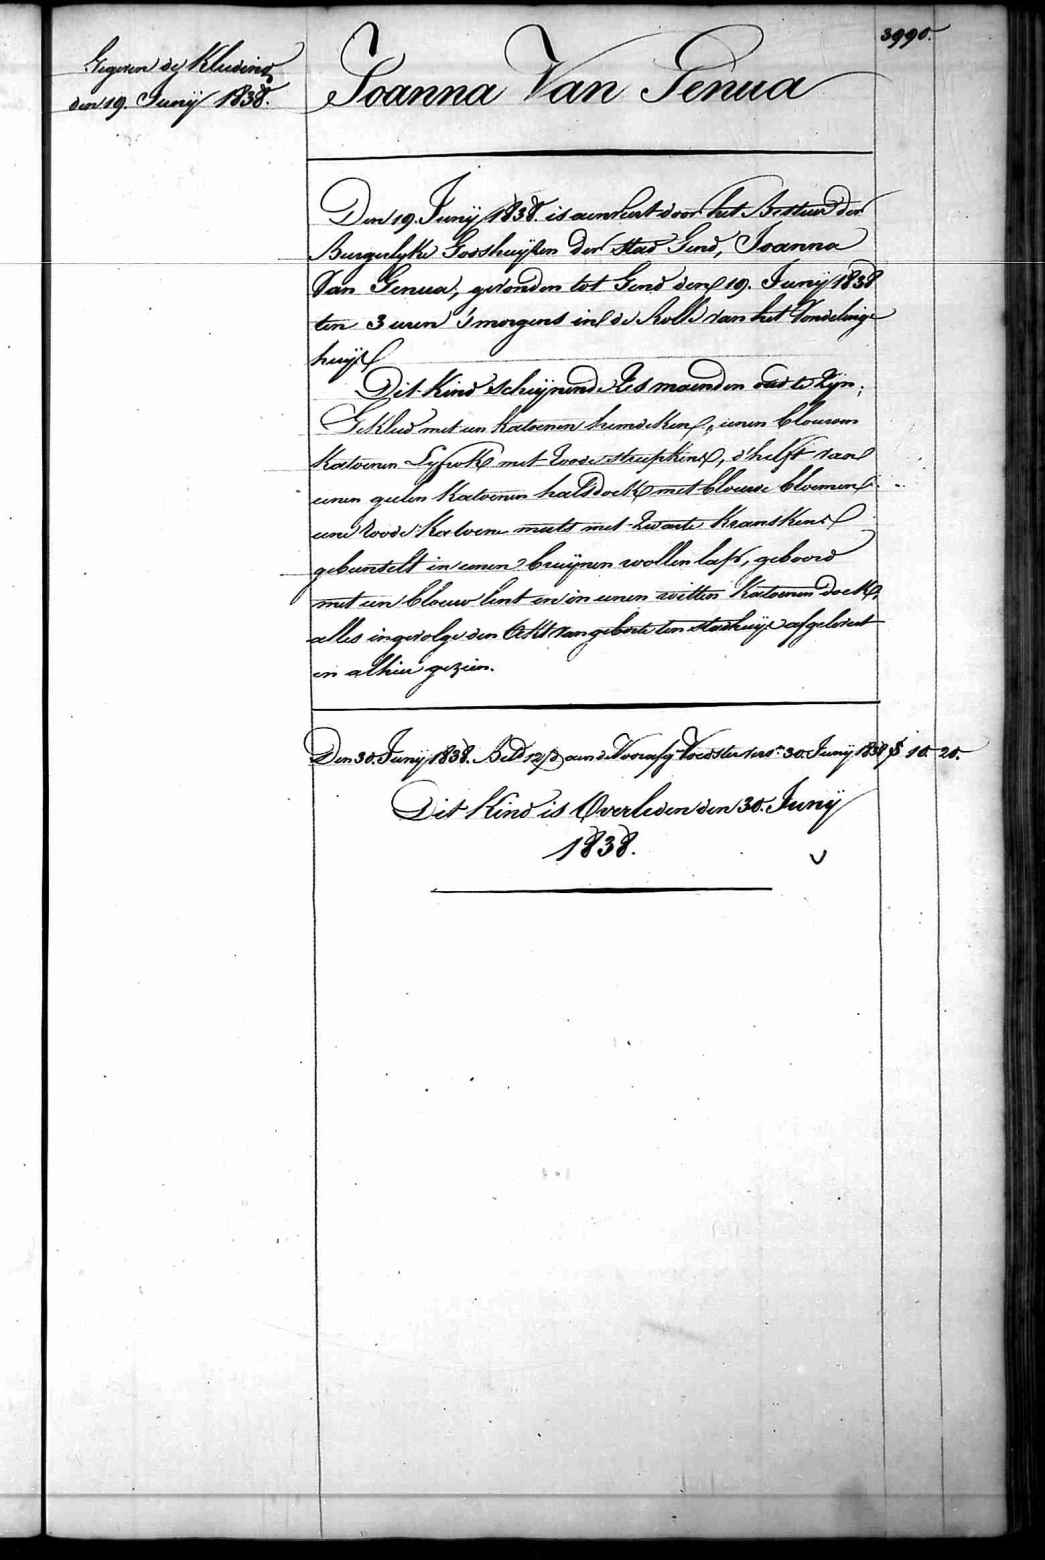 3990.
Gegeven de Kleeding
den 19. Junij 1838.
Joanna Van Genua
Den 19. Junij 1838. is aenveert door het Bestuer der
Burgerlyke Godshuijsen der Stad Gend, Joanna
Van Genua, gevonden tot Gend den 19. Junij 1838
ten 3 uren 's morgens in de Rolle van het Vondelinge
huijs
Dit Kind schijnende Zes maenden oud te Zijn;
Gekleed met een Katoenen hemdeken, eenen blouwen
Katoenen Lyfrok met roode streepkens, d'helft van
eenen geelen Katoenen halsdoek met blouwe bloemen
eene roode Katoene muts met Zwarte Kranskens
gebuntelt in eenen bruijnen wollen lap, geboord
met een blouw lint en in eenen witten Katoenen doek,
alles ingevolge den Akt van geboorte ten stadhuijse afgelevert
en alhier gezien.
Den 30. Junij 1838. Bet. 12 aen de Voedster 30. Junij 1838 10. 20.
Dit Kind is Overleden den 30. Junij
1838.